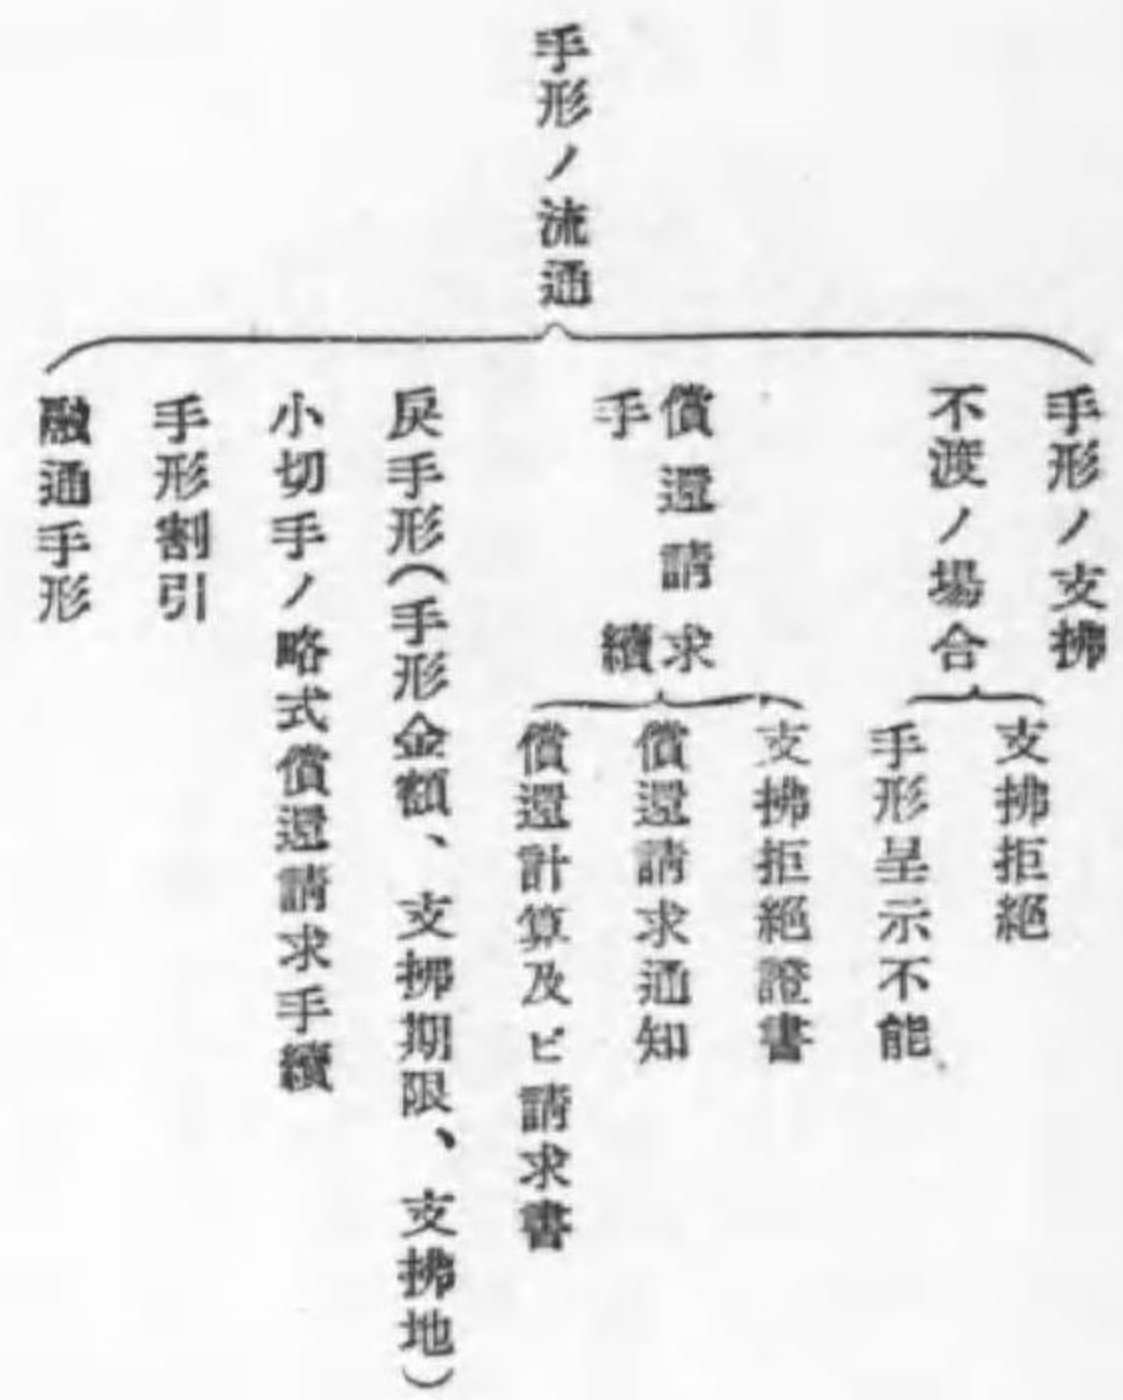 手形ノ流通
手形ノ支拂
不渡ノ場合
支拂拒絕
手形呈示不能
償還請求
手續
支拂拒絕證書
償還請求通知
償還計算及ビ請求書
戾手形(手形金額、支拂期限、支拂地)
小切手ノ略式償還請求手續
手形割引
融通手形